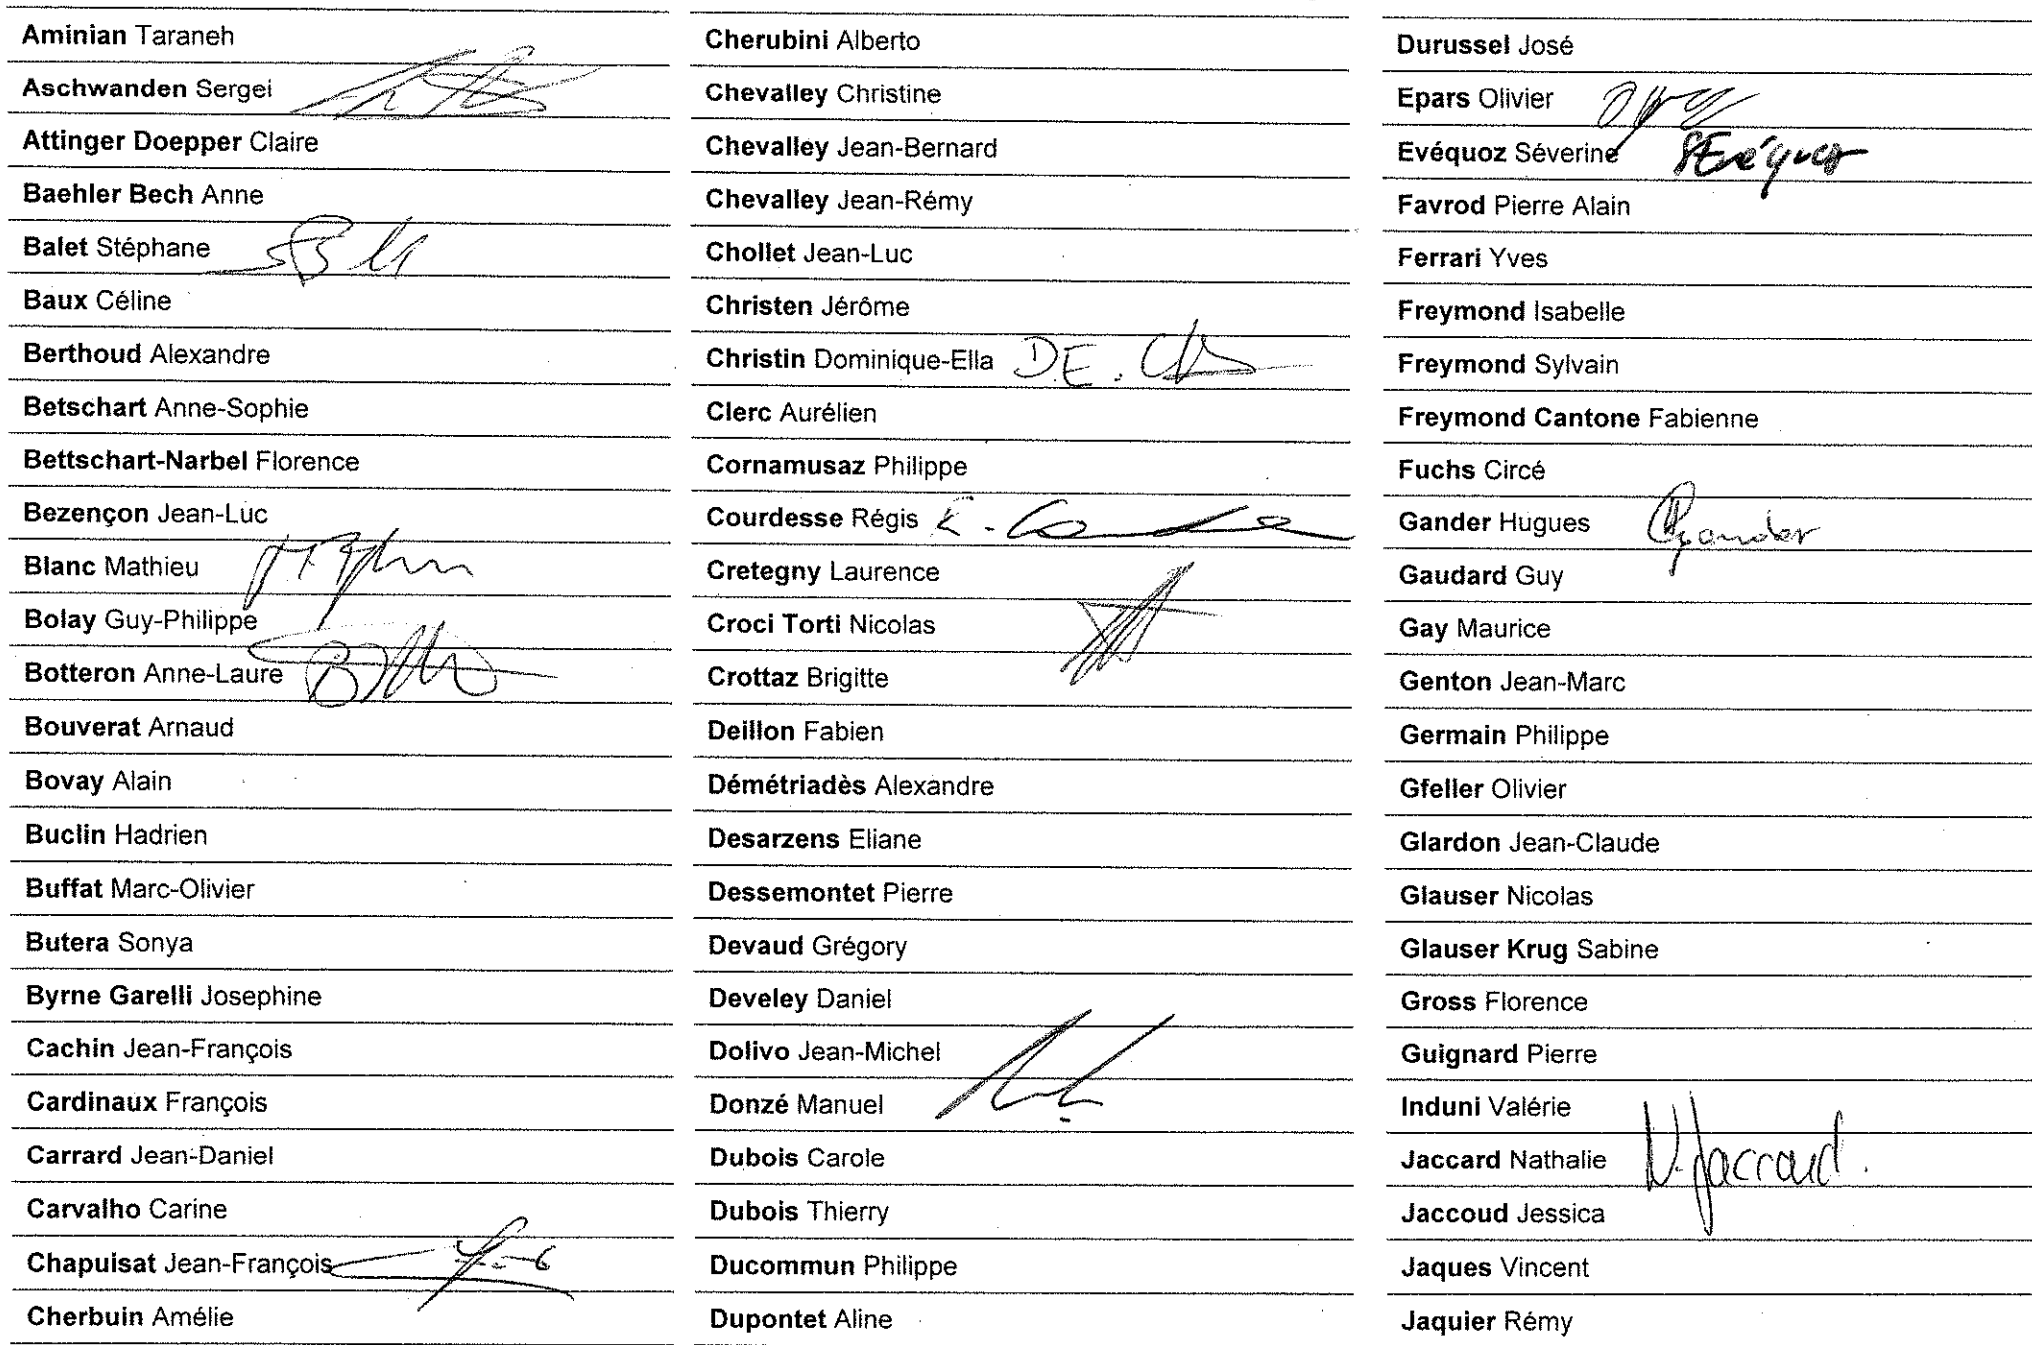 Aminian Taraneh
Aschwanden Sergei
Attinger Doepper Claire
Baehler Bech Anne
Balet Stéphane
Baux Céline
Berthoud Alexandre
Betschart Anne-Sophie
Bettschart-Narbel Florence
Bezençon Jean-Luc
Blanc Mathieu
Bolay Guy-Philippe
Botteron Anne-Laure
Bouverat Arnaud
Bovay Alain
Buclin Hadrien
Buffat Marc-Olivier
Butera Sonya
Byrne Garelli Josephine
Cachin Jean-François
Cardinaux François
Carrard Jean-Daniel
Carvalho Carine
Chapuisat Jean-François
Cherbuin Amélie
Cherubini Alberto
Chevalley Christine
Chevalley Jean-Bernard
Chevalley Jean-Rémy
Chollet Jean-Luc
Christen Jérôme
Christin Dominique-Ella D.E.
Clerc Aurélien
Cornamusaz Philippe
Courdesse Régis
Cretegny Laurence
Croci Torti Nicolas
Crottaz Brigitte
Deillon Fabien
Démétriadès Alexandre
Desarzens Eliane
Dessemontet Pierre
Devaud Grégory
Develey Daniel
Dolivo Jean-Michel
Donzé Manuel
Dubois Carole
Dubois Thierry
Ducommun Philippe
Dupontet Aline
Durussel José
Epars Olivier
Evéquoz Séverine SEvéquoz
Favrod Pierre Alain
Ferrari Yves
Freymond Isabelle
Freymond Sylvain
Freymond Cantone Fabienne
Fuchs Circé
Gander Hugues Gander
Gaudard Guy
Gay Maurice
Genton Jean-Marc
Germain Philippe
Gfeller Olivier
Glardon Jean-Claude
Glauser Nicolas
Glauser Krug Sabine
Gross Florence
Guignard Pierre
Induni Valérie
Jaccard Nathalie N. Jaccard.
Jaccoud Jessica
Jaques Vincent
Jaquier Rémy